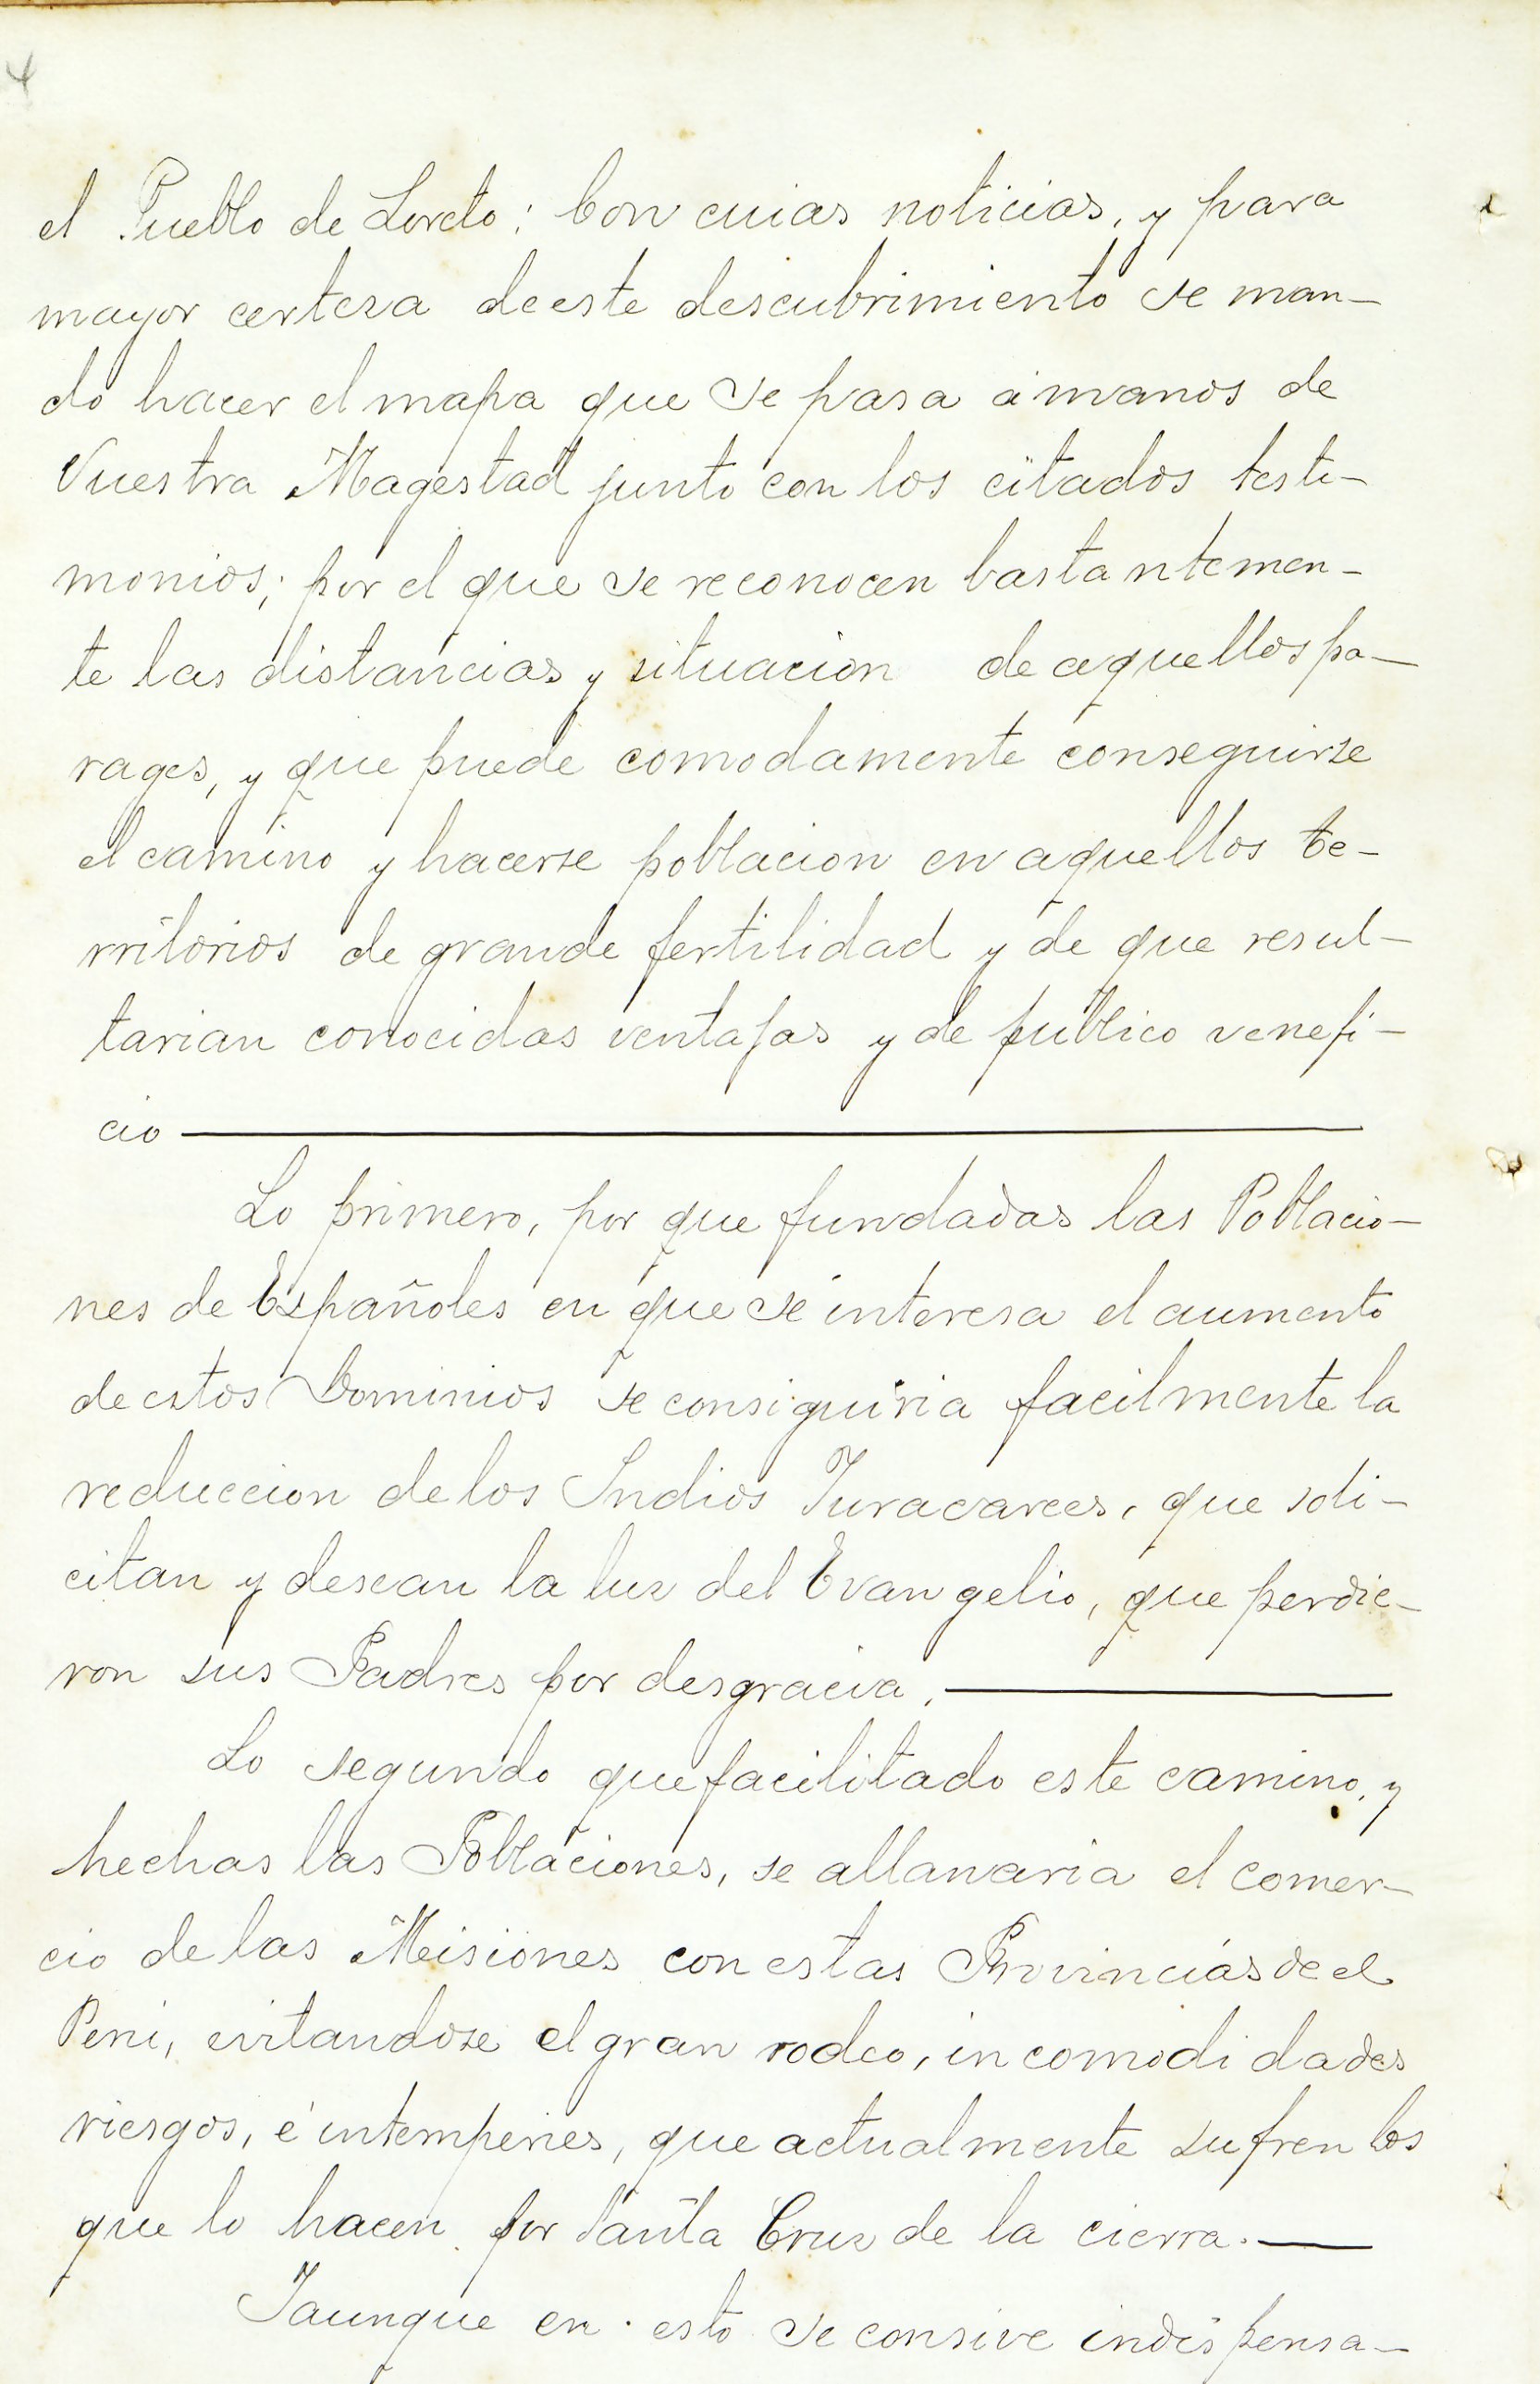 4
el Pueblo de Loreto: Con cuias noticias, y para
mayor certesa deeste descubrimiento se man-
do hacer el mapa que se pasa á manos de
Vuestra Magestad junto con los citados testi-
monios; por el que se reconocen bastantemen-
te las distancias y situacion de aquellos pa-
rages, y que puede comodamente conseguirse
el camino y hacerse poblacion en aquellos te-
rritorios de grande fertilidad y de que resul-
tarian conocidas ventajas y de público venefi-
cio
Lo primero, por que fundadas las Poblacio-
nes de Españoles en que se interesa el aumento
de estos Dominios se consiguiria facilmente la
reduccion de los Indios Yuracarees, que soli-
citan y desean la luz del Evangelio, que perdie-
ron sus Padres por desgracia.
Lo segundo que facilitado este camino, y
hechas las Poblaciones, se allanaria el comer-
cio de las Misiones con estas Provincias de el
Perú, evitandose el gran rodeo, incomodidades
riesgos, é intemperies, que actualmente sufren los
que lo hacen por Santa Cruz de la cierra.
Yaunque en esto se consive indispensa-